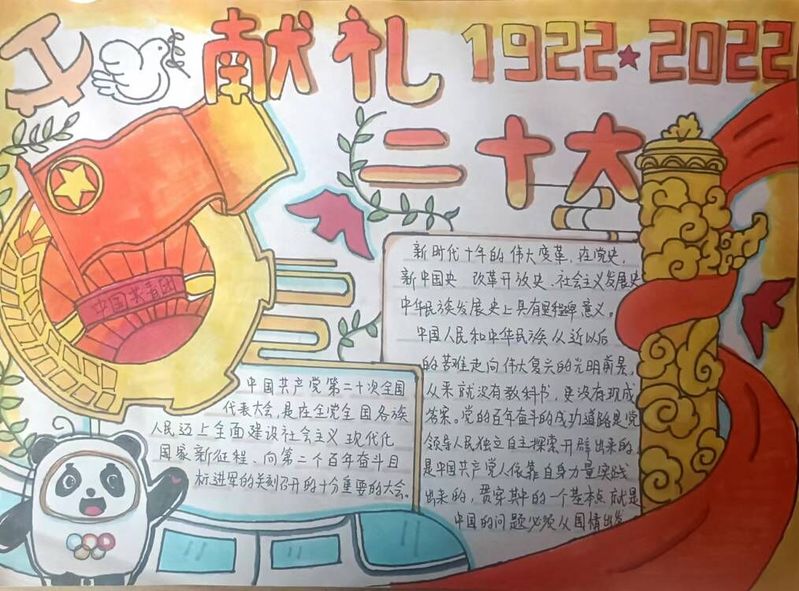 献礼 1922★2022
二十大
中国共青团
新时代十年的伟大变革，在党史、
新中国史、改革开放史、社会主义发展史
中华民族发展史上具有里程碑意义。
中国人民和中华民族从近以后
的苦难走向伟大复兴的光明前景，
从来就没有教科书，更没有现成
答案。党的百年奋斗的成功道路是党
领导人民独立自主探索开辟出来的，
是中国共产党人依靠自身力量实践
出来的，贯穿其中的一个基本点就是
中国的问题必须从国情出发
中国共产党第二十次全国
代表大会，是在全党全国各族
人民迈上全面建设社会主义现代化
国家新征程、向第二个百年奋斗目
标进军的关刻召开的十分重要的大会。